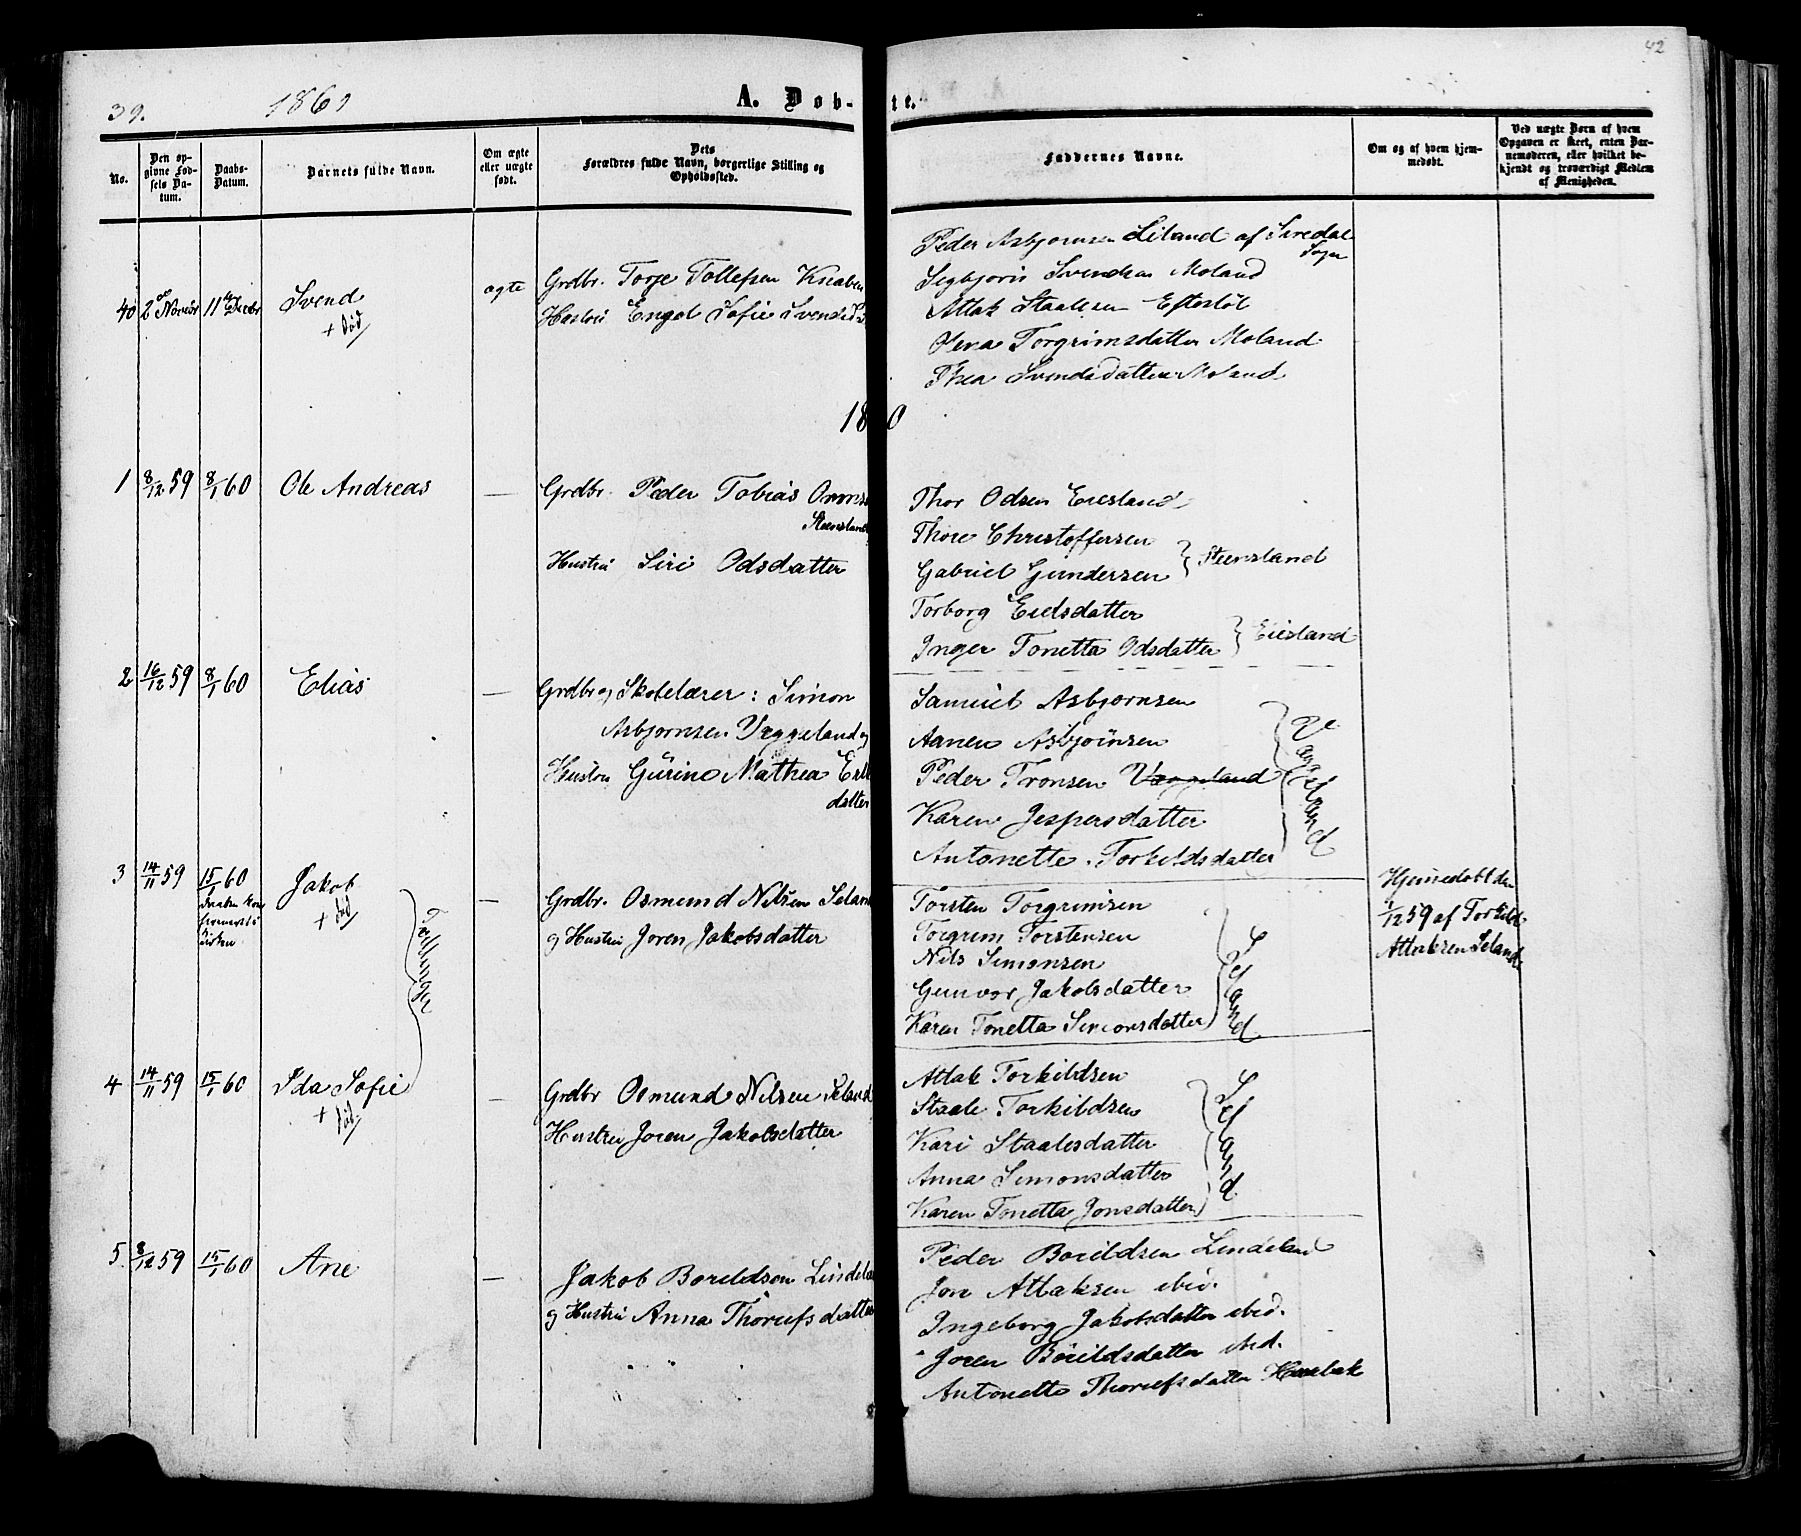 39.
1861
A. Døb-
te.
42
No.
Den op-
givne Fød-
sels Da-
tum.
Daabs-
Datum.
Barnets fulde Navn.
Om ægte
eller uægte
født.
Dets
Forældres fulde Navn, borgerlige Stilling og
Opholdssted.
Faddernes Navne.
Om og af hvem hjem-
medøbt.
Ved uægte Børn af hvem
Opgaven er skeet, enten Bar-
nemoderen, eller hvilket be-
kjendt og troværdigt Medlem
af Menigheden.
40
2 Novbr
11 Decbr
Svend
+ død
ægte
Grdbr. Torje Tollefsen Knaben
Hustru Engel Sofie Svensd
Peder Asbjornsen Liland af Siredal
Sogn
Sigbjorn Svendsen Moland
Atlak Staalesen Eftestøl
Torgrimsdatter Moland
Thea Svendsdatter Moland
18 0
1
8/12 59
8/1 60
Ole Andreas
—
Grdbr. Peder Tobias Omms
Steensland
Hustru Siri Odsdatter
Thor Odsen Eiesland
Thore Christoffersen
Gabriel Gundersen } Steensland
Torborg Eielsdatter
Inger Tonetta Odsdatter } Eiesland
2
16/12 59
8/1 60
Elias
—
Grdbr og Skolelærer: Simon
Asbjornsen Væggeland og
Hustru Gurine Mathea
datter
Samuel Asbjornsen
Aanen Asbjornsen
Peder Tronsen Væggeland
Karen Jespersdatter
Antonette Torkildsdatter
Væggeland
3
14/11 59
15/1 60
Daaben kon
firmeret i
Kirken
Jakob
+ død
Tvillinger
—
Grdbr. Osmund Nilsen Seland
og Hustru Joren Jakobsdatter
Torsten Torgrimsen
Torgrim Torstensen
Nils Simonsen
Gunvor Jakobsdatter
Karen Tonetta Simonsdatter
Seland
Hjemmedøbt den
1/12 59 af Torkild
Atlaksen Seland
4
14/11 59
15/1 60
Ida Sofie
+ død
—
Grdbr Osmund Nilsen Seland
Hustru Joren Jakobsdatter
Atlak Torkildsen
Staale Torkildsen
Kari Staalesdatter
Anna Simonsdatter
Karen Tonetta Jonsdatter
Seland
5
8/12 59
15/1 60
Ane
—
Jakob Borildsen Lindela
og Hustru Anna Thorlefsdatter
Peder Borildsen Lindeland
Jon Atlaksen ibid.
Ingeborg Jakobsdatter ibid.
Joren Borildsdatter ibid.
Antonette Thorlefsdatter